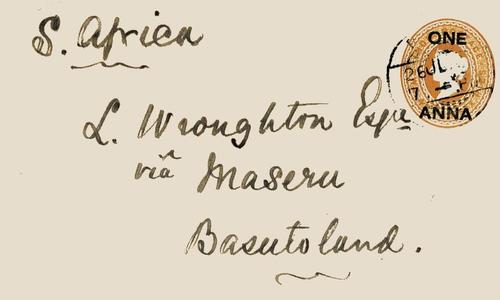 S. Africa
ONE
26 JL
7
ANNA
L. Wroughton Esqre
viâ Maseru
Basutoland.